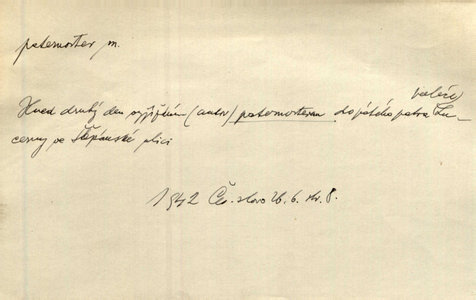 paternoster m.
paláce
Hned druhý den vyjíždím (autor) paternosterem do pátého patra Lu-
cerny ve Štěpánské ulici
1942 Čes. slovo 26.6. str. 8.